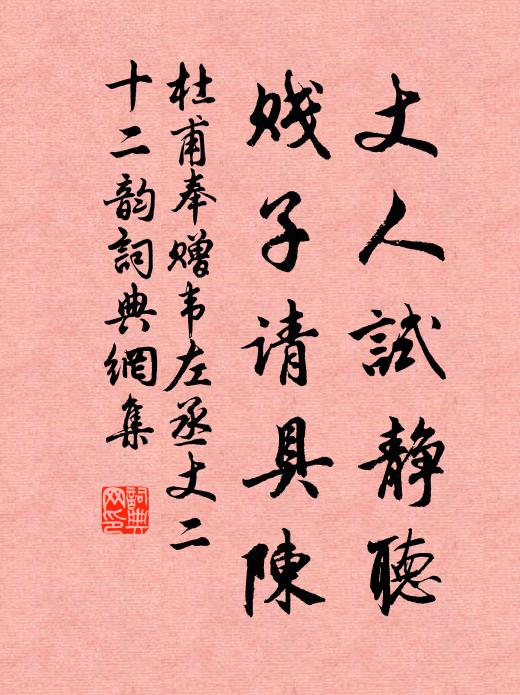 丈人試静聽
賤子请具陳
杜甫奉赠韦左丞丈二
十二韵詞典網集
詞典网印